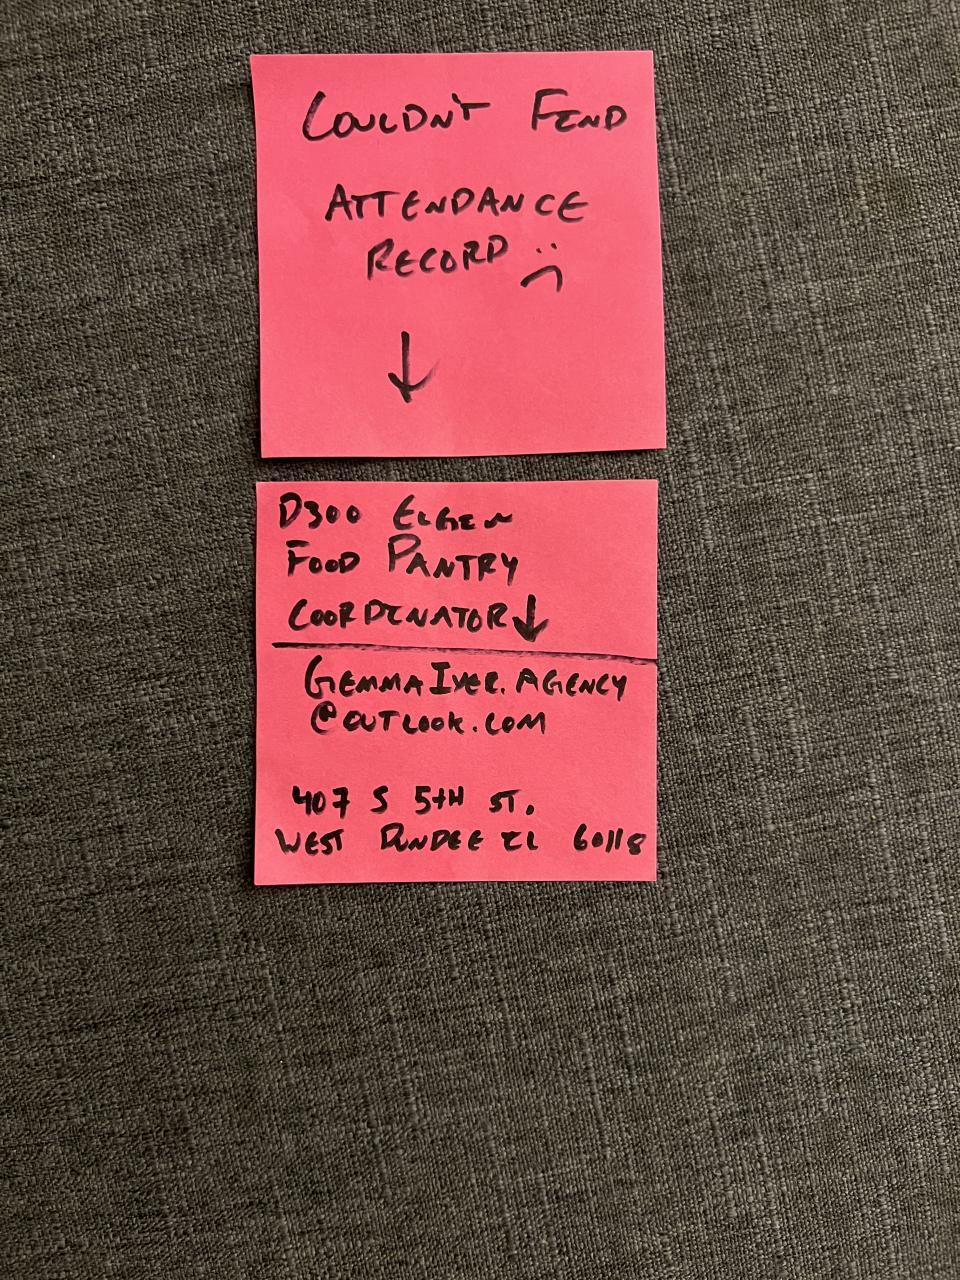 COULDN'T FIND
ATTENDANCE
RECORD :(
↓
D300 ELGIN
FOOD PANTRY
COORDINATOR ↓
GEMMAIVER.AGENCY
@OUTLOOK.COM
407 S 5TH ST.
WEST DUNDEE IL 60118